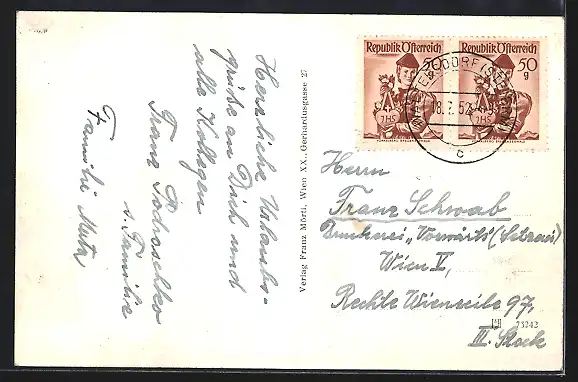 Herzliche Urlaubs-
grüße an Dich und
alle Kollegen
Franz
u. Familie
Familie
Verlag Franz Mörtl, Wien XX., Gerhardusgasse 27
Republik Österreich
50
g
Republik Österreich
50
g
18.7.52
c
Herrn
Franz Schwab
Druckerei „Vorwärts" (Setzerei)
Wien V,
Rechte Wienzeile 97,
III. Stock
73243